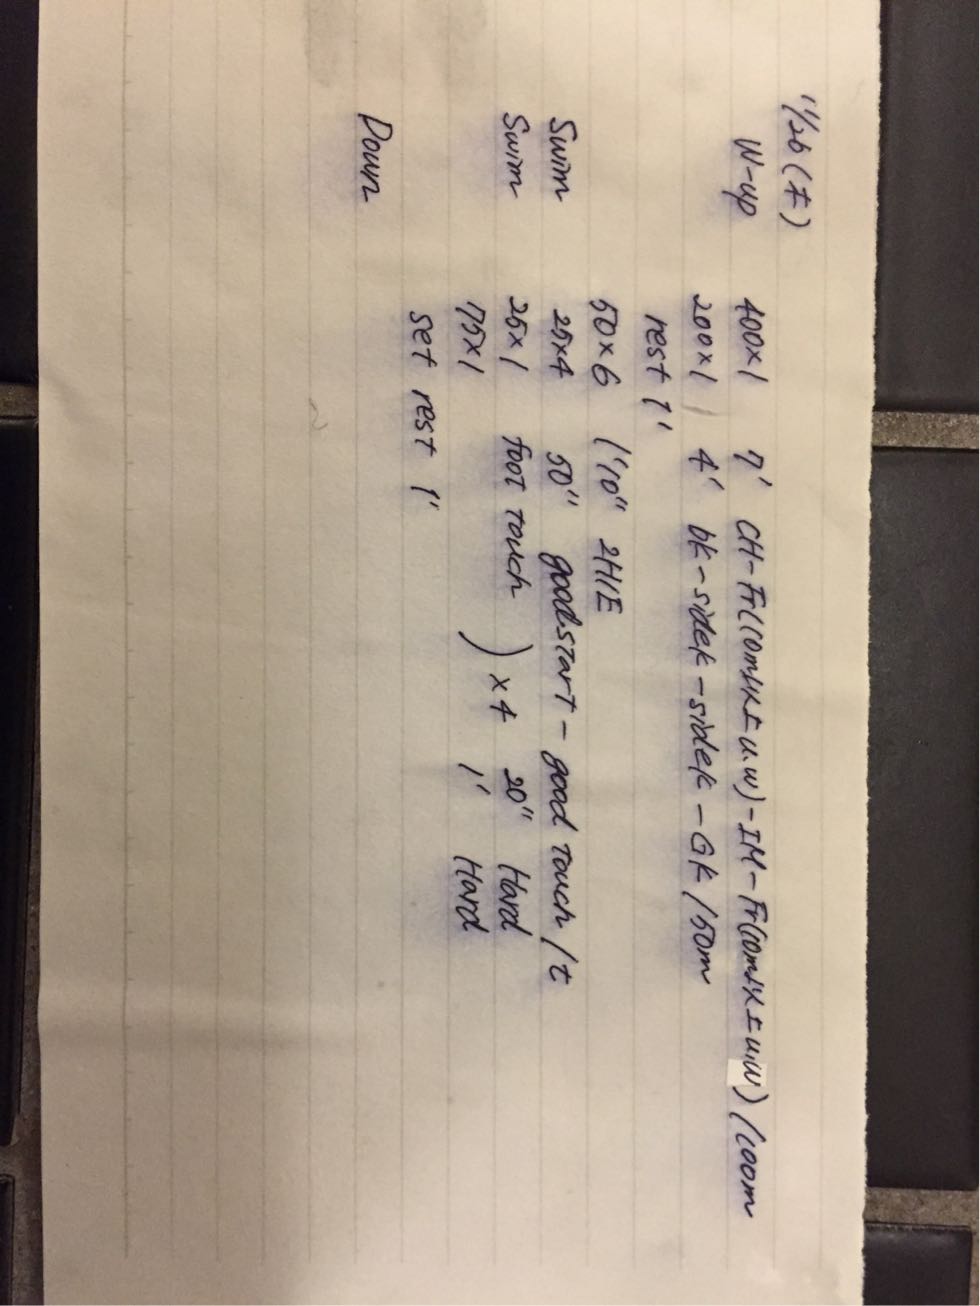 11/26(土)
W-up 400×1 7' CH-Fr(10m以上u.w)-IM-Fr(10m以上u.w)/100m
200×1 4' bk-sidek-sidek-Gk/50m
rest 1'
50×6 1'10" 2H1E
Swim 25×4 50" good start-good touch/t
Swim 25×1 foot touch )×4 20" Hard
75×1 1' Hard
set rest 1'
Down